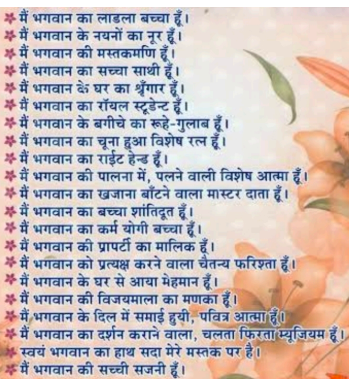 मैं भगवान का लाडला बच्चा हूँ।
मैं भगवान के नयनों का नूर हूँ।
मैं भगवान की मस्तकमणि हूँ।
मैं भगवान का सच्चा साथी हूँ।
मैं भगवान के घर का श्रृँगार हूँ।
मैं भगवान का रॉयल स्टूडेन्ट हूँ।
मैं भगवान के बगीचे का रूहे-गुलाब हूँ।
मैं भगवान का चूना हुआ विशेष रत्न हूँ।
मैं भगवान का राईट हैन्ड हूँ।
मैं भगवान की पालना में, पलने वाली विशेष आत्मा हूँ।
मैं भगवान का खजाना बाँटने वाला मास्टर दाता हूँ।
मैं भगवान का बच्चा शांतिदूत हूँ।
मैं भगवान का कर्म योगी बच्चा हूँ।
मैं भगवान की प्रापर्टी का मालिक हूँ।
मैं भगवान को प्रत्यक्ष करने वाला चैतन्य फरिश्ता हूँ।
मैं भगवान के घर से आया मेहमान हूँ।
मैं भगवान की विजयमाला का मणका हूँ।
मैं भगवान के दिल में समाई हुयी, पवित्र आत्मा हूँ।
मैं भगवान का दर्शन कराने वाला, चलता फिरता म्यूजियम हूँ।
स्वयं भगवान का हाथ सदा मेरे मस्तक पर है।
मैं भगवान की सच्ची सजनी हूँ।